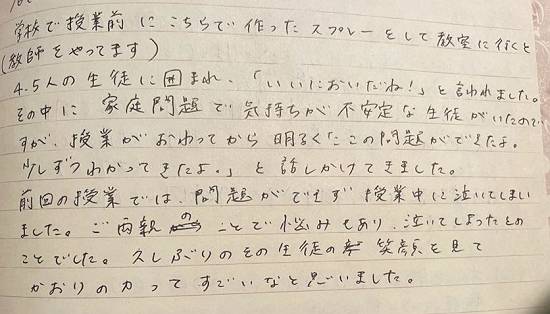 学校で授業前にこちらで作ったスプレーをして教室に行くと
(教師をやってます)
4.5人の生徒に囲まれ、「いいにおいだね!」と言われました。
その中に家庭問題で気持ちが不安定な生徒がいたので
すが、授業がおわってから明るく「ここの問題ができたよ。
少しずつわかってきたよ。」と話しかけてきました。
前回の授業では、問題ができず授業中に泣いてしまい
ました。ご両親のことで悩みもあり、泣いてしまったとの
ことでした。久しぶりのその生徒の笑顔を見て
かおりの力ってすごいなと思いました。